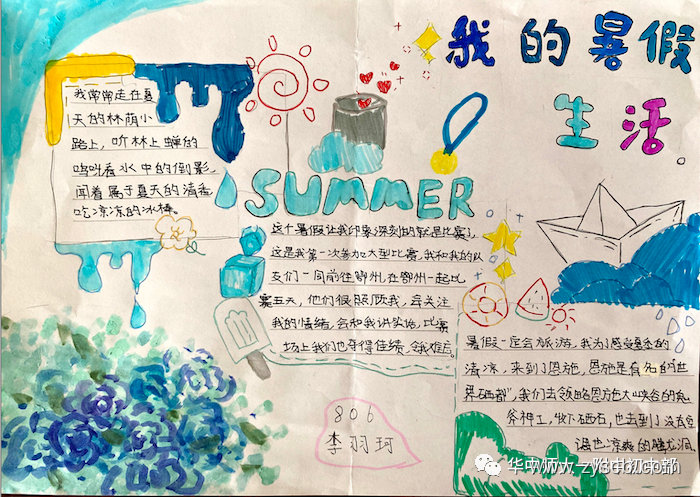 我的暑假
生活
我常常走在夏
天的林荫小
路上，听林上蝉的
鸣叫看水中的倒影，
闻着属于夏天的清香
吃凉凉的冰棒。
SUMMER
这个暑假让我印象深刻的就是比赛了，
这是我第一次参加大型比赛，我和我的队
友们一同前往鄂州，在鄂州一起比
赛五天，他们很照顾我，会关注
我的情绪，会和我讲笑话，比赛
场上我们也夺得佳绩，令我难忘。
暑假一定会旅游，我为了感受夏季的
清凉，来到了恩施，恩施是有名的"世
界硒都"，我们去领略恩施大峡谷的鬼
斧神工，牧下硒石，也去到了
凉爽的腾龙洞
806
李羽珂
华中师大一附中初中部